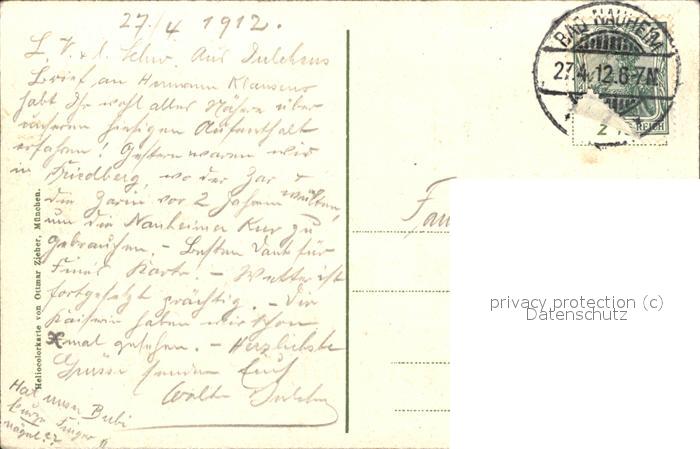 27./4 1912.
L. V. & l. Schw. Aus Dulchens
Brief an Hermann Klausens
habt Ihr wohl alles Nähere über
unseren hiesigen Aufenthalt
erfahren! Gestern waren wir
in Friedberg, wo der Zar &
die Zarin vor 2 Jahren weilten,
um die Nauheimer Kur zu
gebrauchen. - Besten Dank für
Karte. - Wetter ist
fortgesetzt prächtig. - Die
Kaiserin haben wir schon
mal gesehen. - Herzlichste
Grüsse senden Euch
Walter
Hat unser Bubi
kurze Finger
nägel??
Heliocolorkarte von Ottmar Zieher, München.
BAD NAUHEIM
27.4.12.6-7N
REICH
privacy protection (c)
Datenschutz